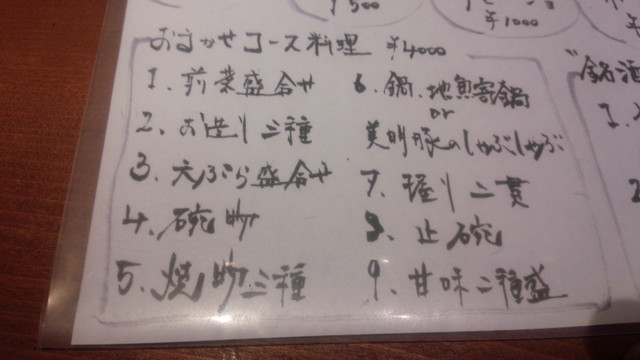 ¥500
¥1000
おまかせコース料理 ¥4000
1. 前菜盛合せ
2. お造り三種
3. 天ぷら盛合せ
4. 碗物
5. 焼物三種
6. 鍋、地魚寄鍋
or
美明豚のしゃぶしゃぶ
7、握り二貫
8、止碗
9、甘味二種盛
"銘酒
1.